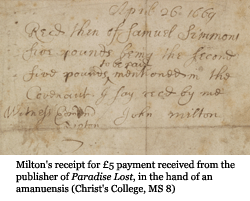 April 26. 1669
Recd then of Samuel Simmons
five pounds being the Second
to be paid
five pounds mentioned in the
Covenant I say recd by me
Witness John Milton
Milton's receipt for £5 payment received from the
publisher of Paradise Lost, in the hand of an
amanuensis (Christ's College, MS 8)